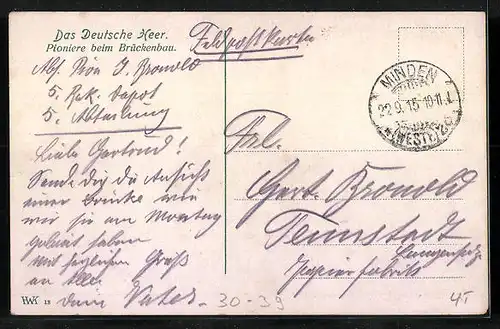 Das Deutsche Heer.
Pioniere beim Brückenbau.
Feldpostkarte
Abs. Pion J. Bronold
5. Rek. Depot
5. Abteilung
Liebe Gertrud!
Send dir die Ansicht
einer Brücke wie
wir sie am Montag
gebaut haben
Mit herzlichem Gruß
an alle
dein Vater
HWK 18
MINDEN
22.9.15.10-11.
(WESTF)
Frl.
Gert. Bronold
Tennstedt
Langensalza
Papierfabrik
30-39